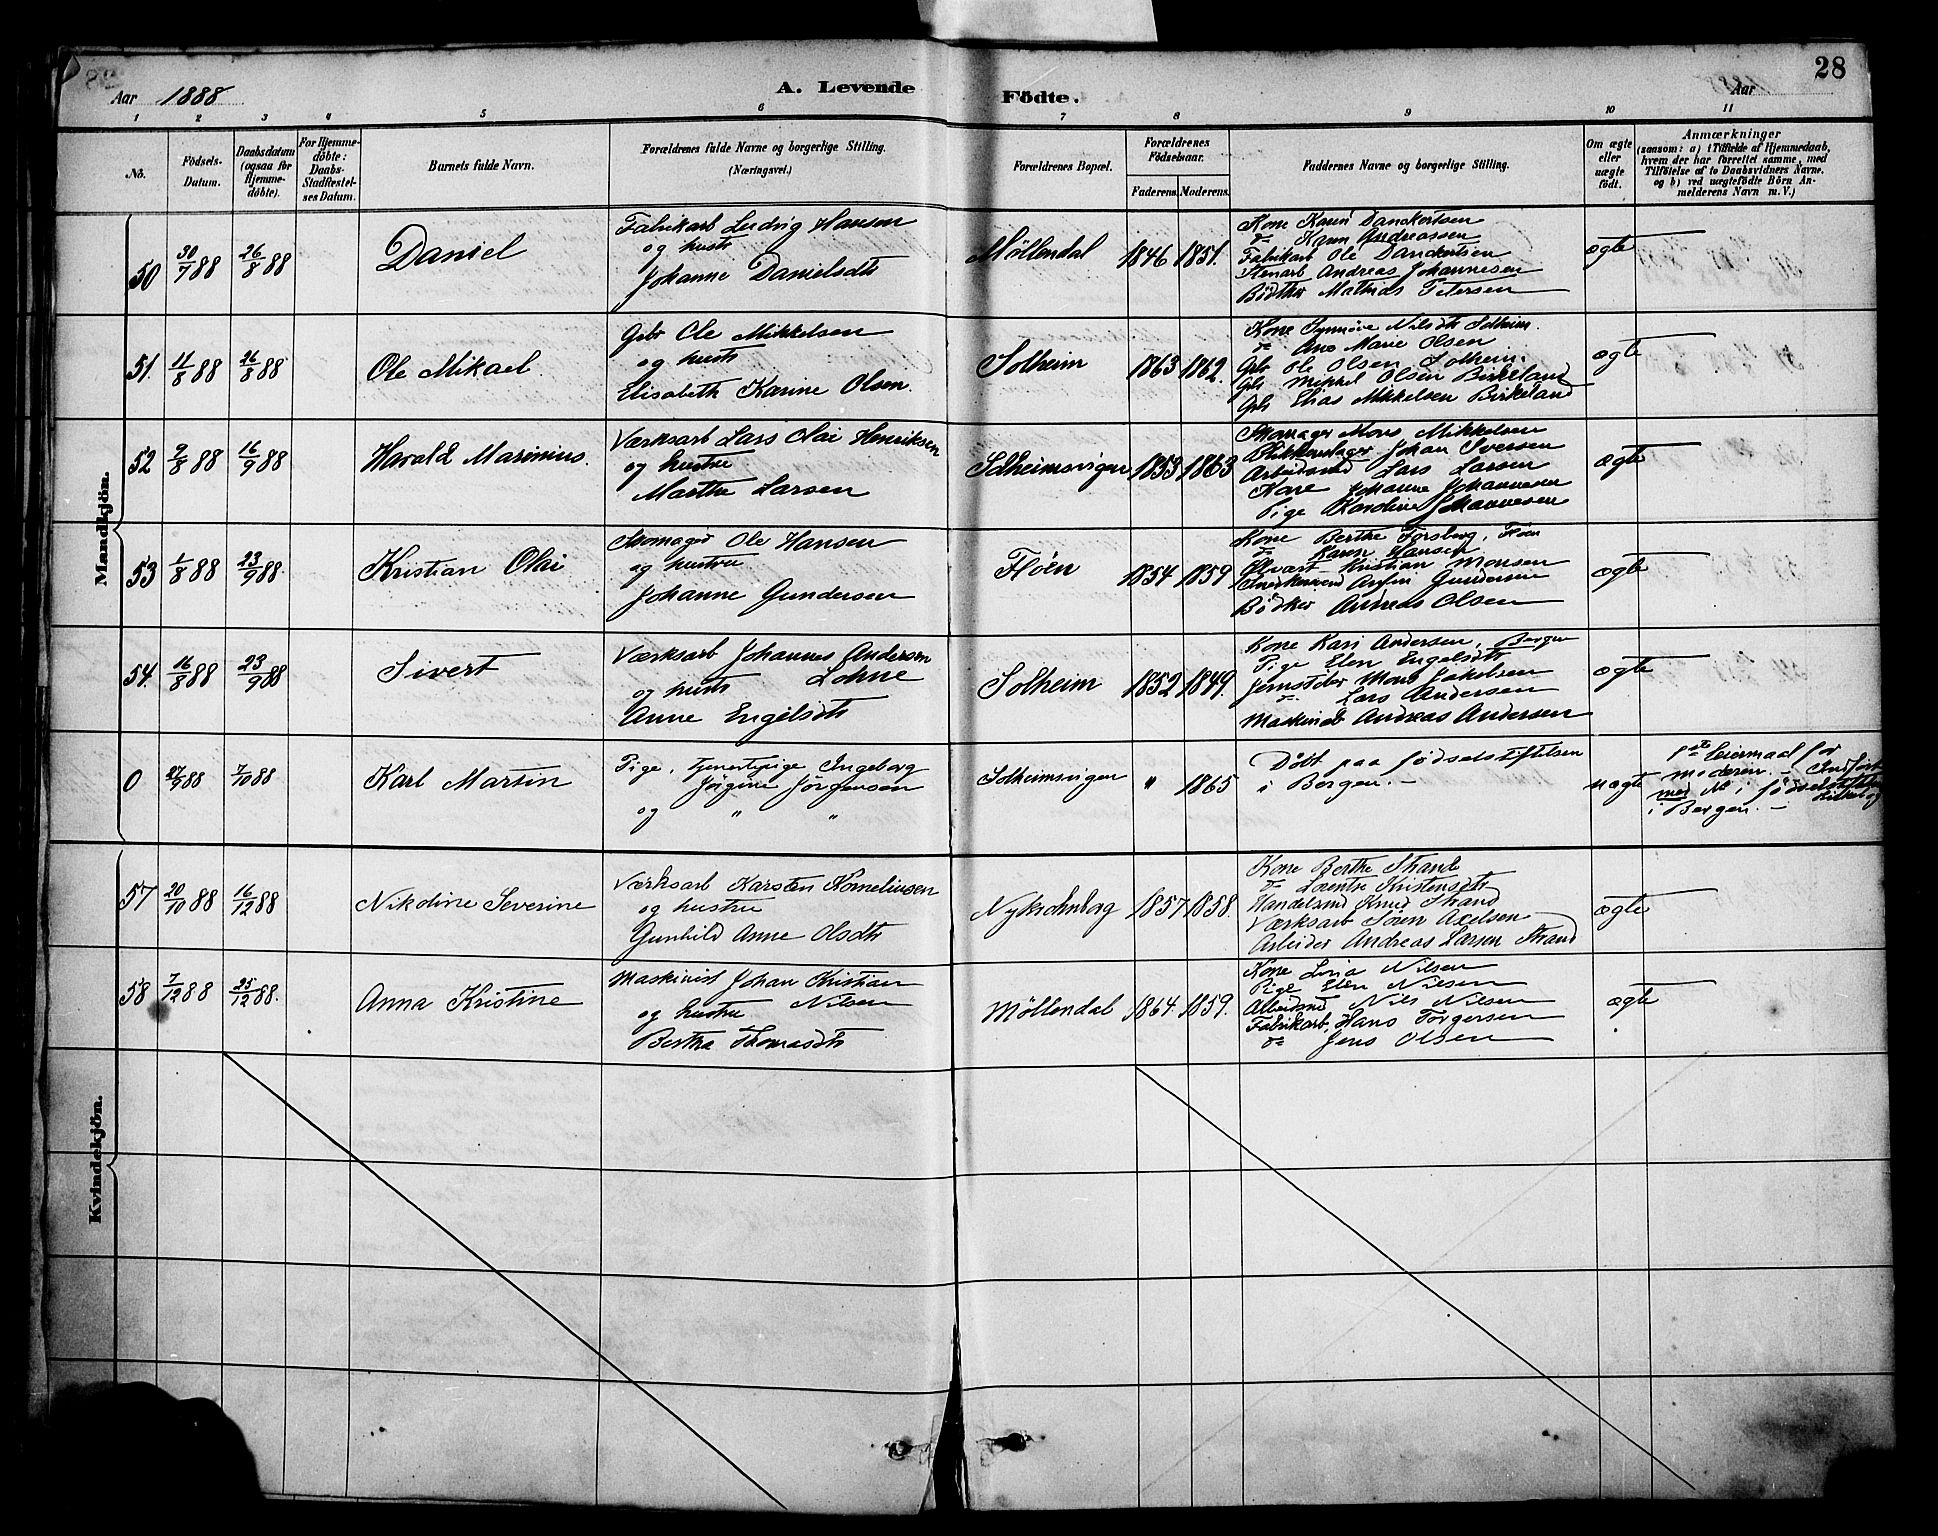 28
Aar 1888 A. Levende Födte. Aar
1 2 3 4 5 6 7 8 9 10 11
No.
Födsels-Datum.
Daabsdatum (ogsaa for Hjemme-döbte).
For Hjemme-döbte: Daabs-Stadfæstel-ses Datum.
Barnets fulde Navn.
Forældrenes fulde Navne og borgerlige Stilling. (Næringsvei.)
Forældrenes Bopæl.
Forældrenes Födselsaar.
Faderens. Moderens.
Faddernes Navne og borgerlige Stilling.
Om ægte eller uægte födt.
Anmærkninger
(saasom: a) i Tilfælde af Hjemmedaab, hvem der har forrettet samme, med Tilföielse af to Daabsvidners Navne, og b) ved uægtefödte Börn An-melderens Navn m. V.)
Mandkjön.
50 30/7 88 26/8 88 Daniel
Fabrikarb Ludvig Hansen
og hustr
Johanne Danielsdtr
Möllendal 1846 1851.
Kone Karen Danckertsen
do Karen Andreassen
Fabrikarb Ole Danckertsen
Stenarb Andreas Johannesen
Bödtker Mathias Petersen
ægte
51. 11/8 88 26/8 88 Ole Mikael.
Gbr Ole Mikkelsen
og hustr
Elisabeth Karine Olsen.
Solheim 1863 1862.
Kone Synnöve Nilsdtr Solheim.
do Ane Marie Olsen
Gbr Ole Olsen Solheim.
Gbr Mikkel Olsen Birkeland
Gbr Elias Mikkelsen Birkeland
ægte
52 9/8 88 16/9 88 Harald Marinius.
Værksarb Lars Olai Henriksen
og hustru
Marthe Larsen
Solheimsvigen 1853 1863
Skomager Mons Mikkelsen
Blikkenslager Johan Iversen
Arbeidsmd Lars Larsen
Kone Johanne Johannesen
Pige Karoline Johannesen
ægte
53 1/8 88 23/9 88. Kristian Olai
Skomager Ole Hansen
og hustru
Johanne Gundersen
Flöen 1854 1859
Kone Berthe Forsberg, Flöen
do Karen Hansen
Kristian Monsen
Gundersen
Bödker Andreas Olsen
ægte
54. 16/8 88 23/9 88 Sivert
Værksarb Johannes Andersen
og hustr Lohne
Anne Engelsdtr
Solheim 1852 1849.
Kone Kari Andersen, Bergen
Pige Elen Engelsdtr
Jernstöber Mons Jakobsen
do Lars Andersen
Maskinarb Andreas Andersen
ægte
0 27/9 88 7/10 88 Karl Martin
Pige, tjenestepige Ingeborg
Jörgine Jörgensen
og " "
Solheimsvigen " 1865
Döbt paa födselsstiftelsen
i Bergen.
uægte
1ste Leiermaal for
moderen. – Indfört
med No i födselsstiftelsen
i Bergen. –
Kvindekjön.
57 20/10 88 16/12 88 Nikoline Severine
Værksarb Karsten Korneliusen
og hustru
Gunhild Anne Olsdtr
Nykronborg 1857 1858.
Kone Berthe Strand
do Lorentse Kristensdtr
Handelsmd Knud Strand
Værksarb Sören Axelsen
Arbeider Andreas Larsen Strand
ægte
58 7/12 88 25/12 88. Anna Kristine
Maskinist Johan Kristian
og hustru Nilsen
Bertha Thomasdtr
Möllendal 1864. 1859.
Kone Livia Nilsen
Pige Elen Nilsen
Arbeidsmd Nils Nilsen
Fabrikarb, Hans Torgersen
do Jens Olsen
ægte